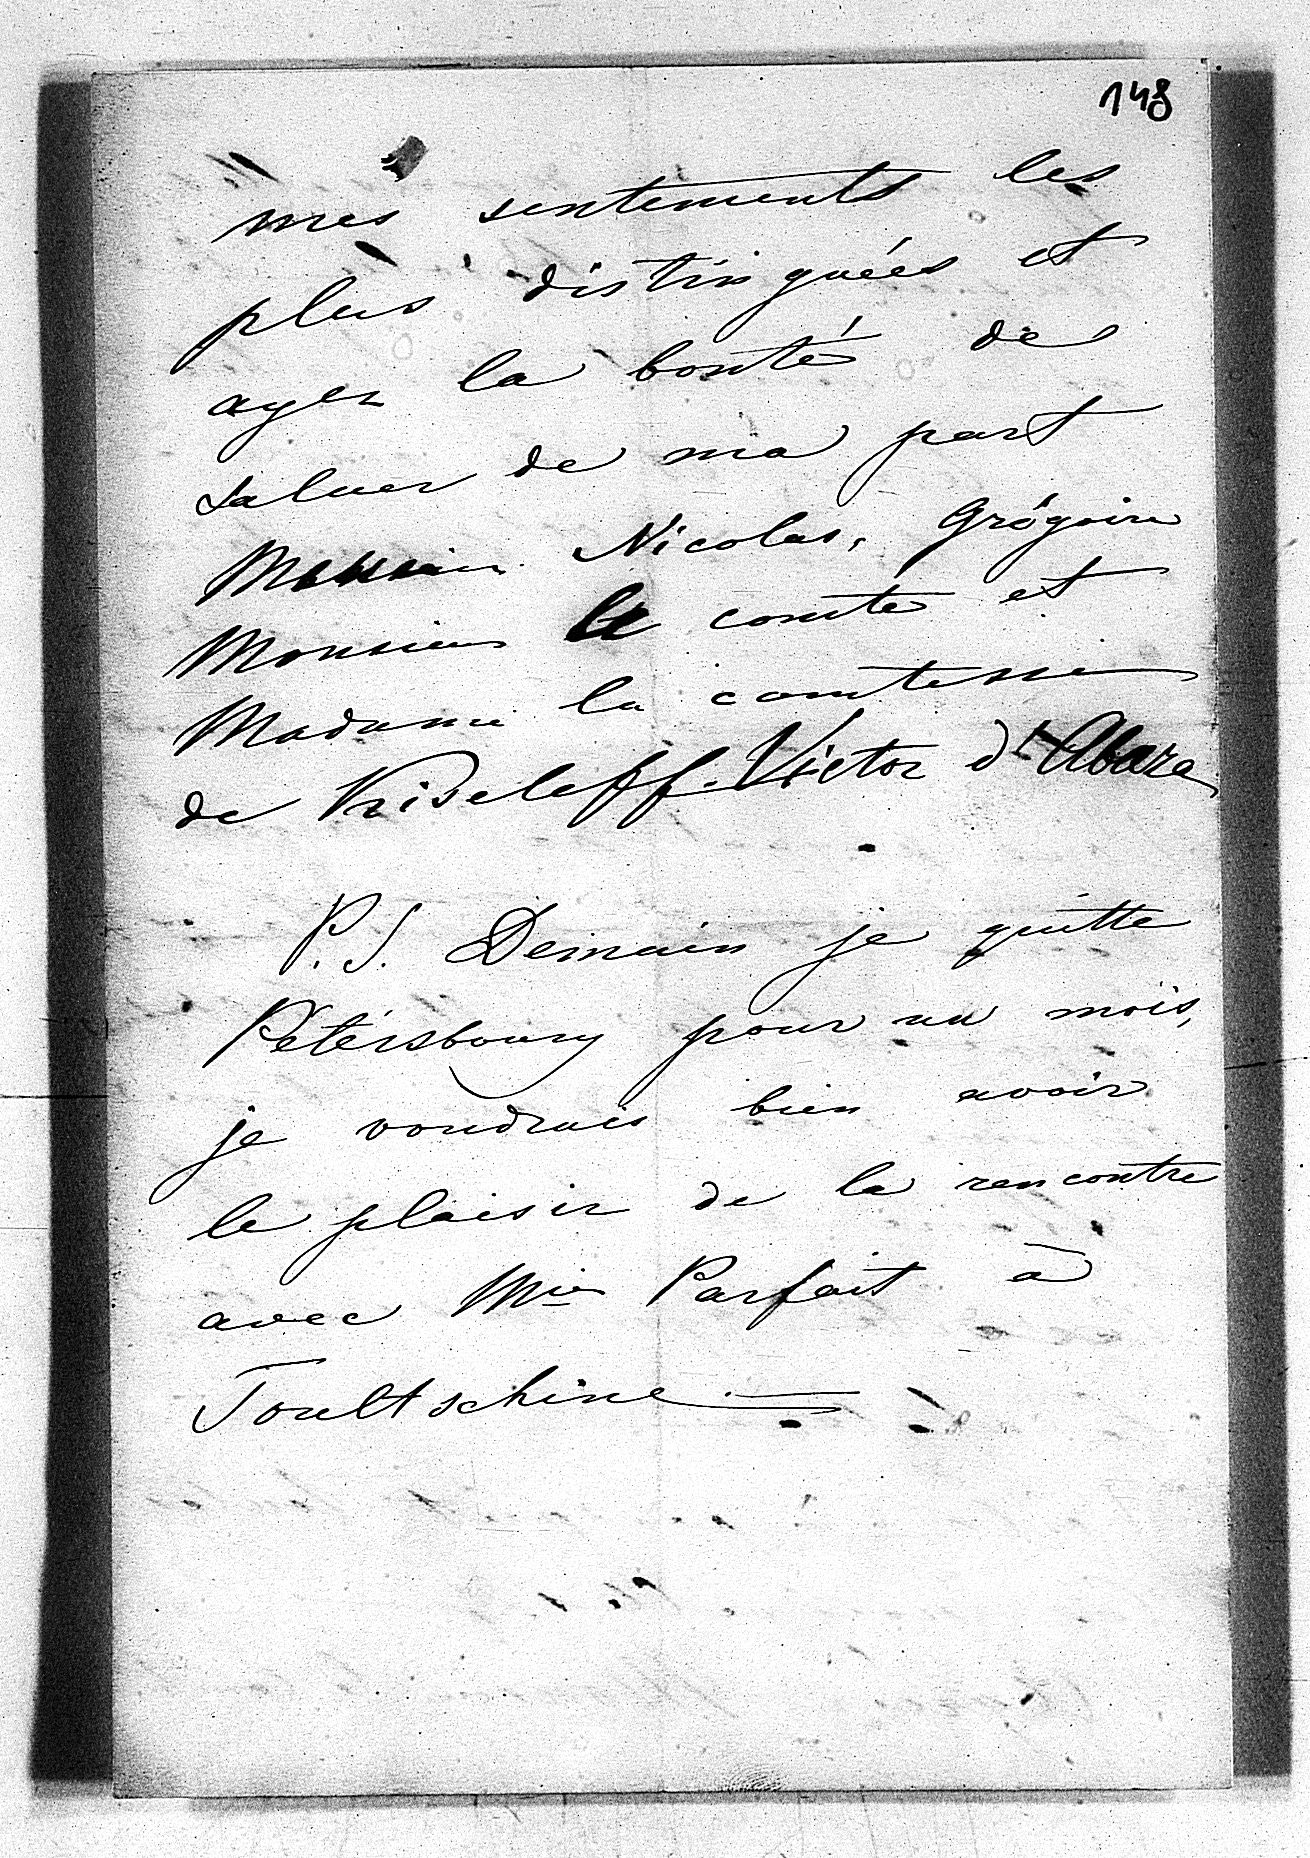 148
mes sentements les
plus distinguées et
ayez la bonté de
saluer de ma part
Nicolas, Grégoire
Monsieur le comte et
Madame la comtesse
de Kiseleff. Victor d'Abaza
P.S. Demain je quitte
Pétersbourg pour un mois,
je voudrais bien avoir
le plaisir de la rencontre
avec Parfait à
Toultschine